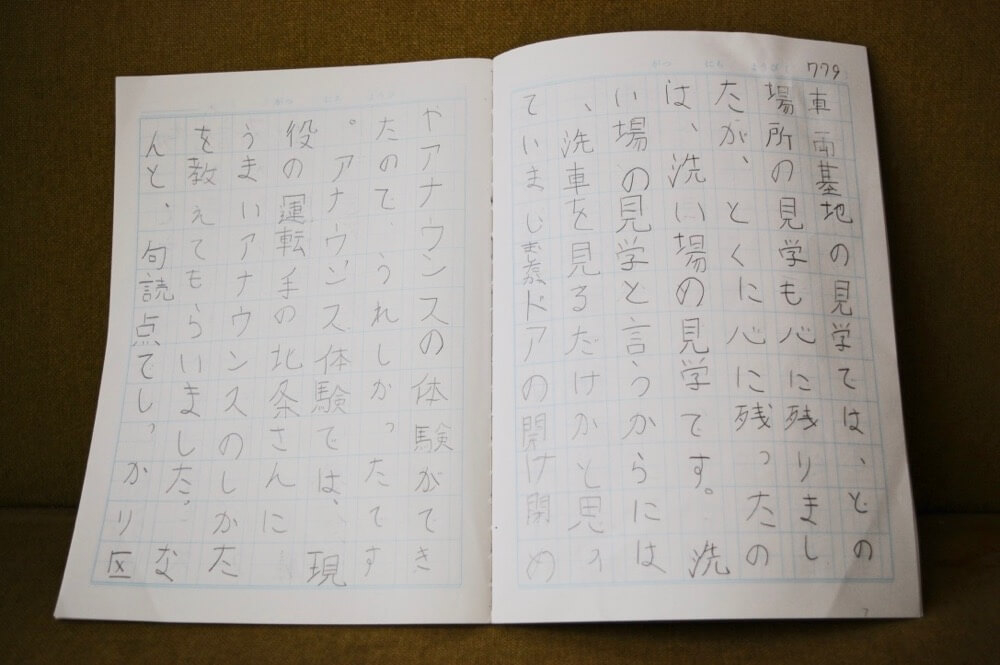 779
車両基地の見学では、どの
場所の見学も心に残りまし
たが、とくに心に残ったの
は、洗い場の見学です。洗
い場の見学と言うからには
、洗車を見るだけかと思っ
ていましドアの開け閉め
やアナウンスの体験ができ
たので、うれしかったです
。アナウンス体験では、現
役の運転手の北条さんに
うまいアナウンスのしかた
を教えてもらいました。な
んと、句読点でしっかり区
7